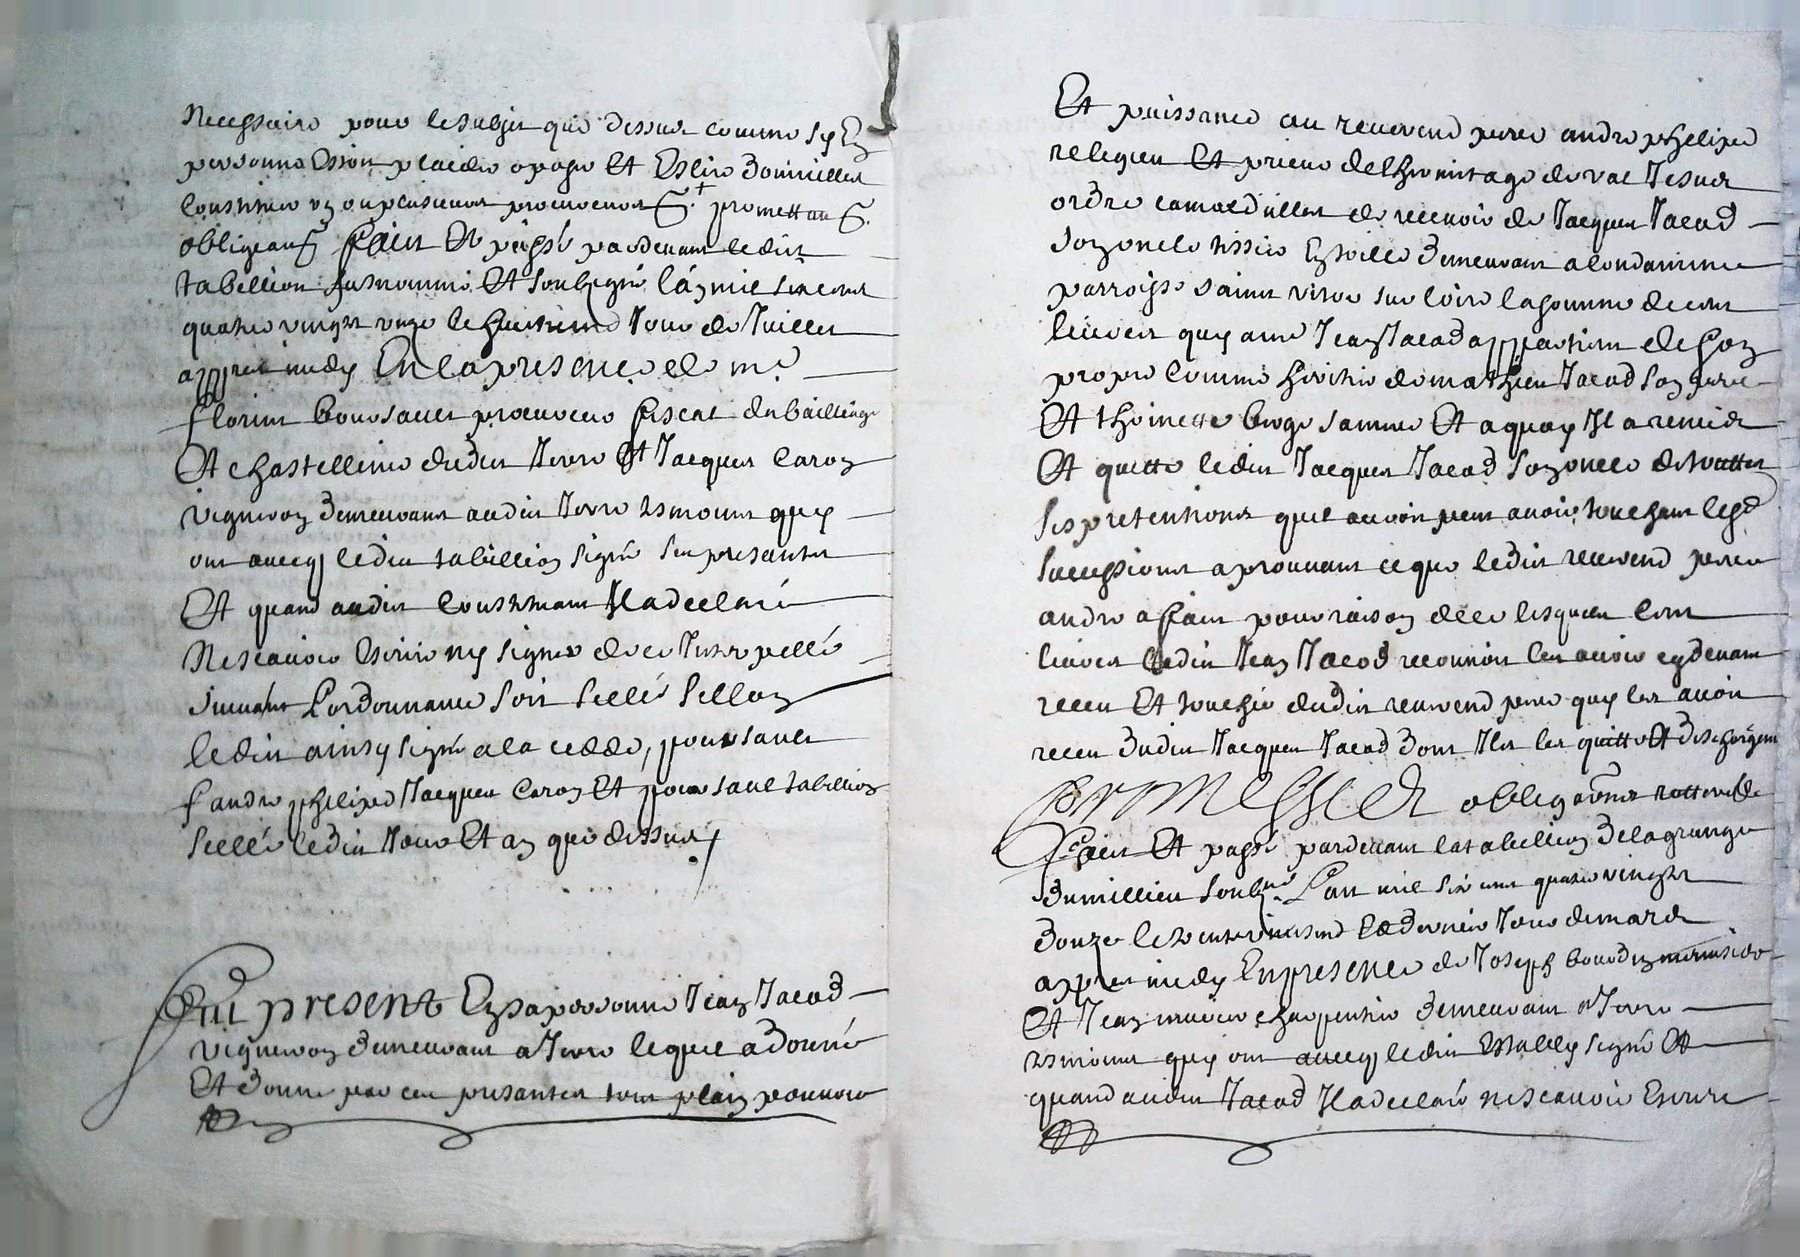 Necessaire pour le subjet que dessus comme sy En
personne Estoit plaider oposer Et Eslire Domicilles
Constituer un ou plusieurs procureurs &. + promettant &.
obligeant &. fait Et passé pardevant ledit
tabellion susnommé Et soubsigné l'an mil six cens
quatre vingts unze le huitiesme Jour de Juillet
appres midy En la presence de me
florint boursault procureur fiscal du bailliage
Et chastellenie dudit Yevre Et Jacques Caron
vigneron Demeurant audit Yevre tesmoins quy
ont avecq ledit tabellion signé ses presantes
Et quand audit Constituant Il a declaré
Ne scavoir Escrire ny signer de ce Interpellé
suivant l'ordonnance soit sellé sellon
ledit ainsy signé a la cedde, poursault
f andre phelipes Jacques Caron Et poursault tabellion
sellé ledit Jour Et an que dessus /
Fut present En sa personne Jean Jacod
vigneron Demeurant a Yevre lequel a Donné
Et Donne par ces presantes tout plain pouvoir
Et puissance au reverend pere andre phelipes
relegieu Et prieur de l'hermitage du val Jesus
ordre camaldulles de recevoir de Jacques Jacod
son oncle tissier En toille Demeurant a bondannine
parroisse saint vitor sur loire la somme de cent
livres quy audit Jean Jacod appartient de son
propre comme heritier de mathieu Jacod son pere
Et thoinette broge sa mere Et a quoy Il a remis
Et quitte ledit Jacques Jacod son oncle de touttes
ses pretentions quil auroit peut avoir touchant lesd
successions aprouvant ce que ledit reverend pere
andre a fait pour raison de ce lesquels cent
livres ledit Jean Jacod reconnoit les avoir cydevant
receu Et touché dudit reverend pere quy les avoit
receu dudit Jacques Jacod Dont Ils les quitte Et descharge
promesses obligations
fait Et passé pardevant le tabellion De la grange
Du millieu soubsné L'an mil six cens quatre vingts
Douze le Dernier Jour de mars
appres midy En presence de Joseph bourdin
Et Jean mercier charpentier Demeurant a Yevre
tesmoins quy ont avecq ledit signé Et
quand audit Jacod Il a declaré ne scavoir Escrire